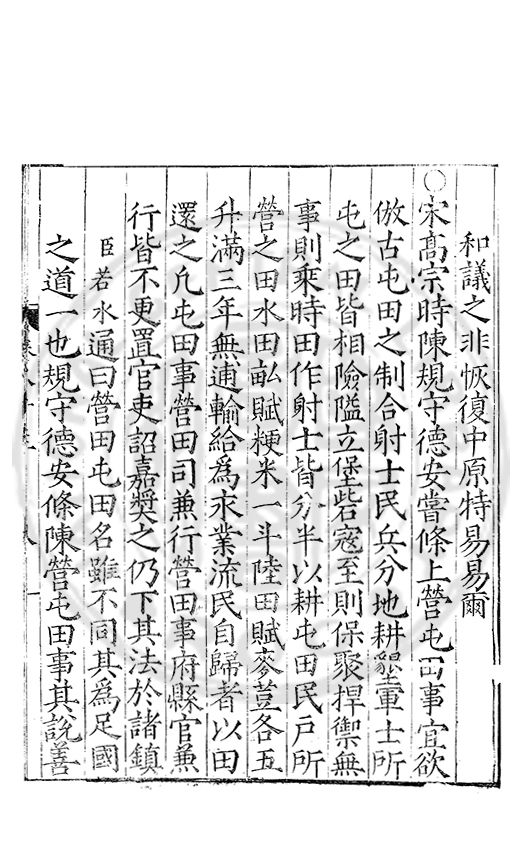 和議之非恢復中原特易易爾
○宋高宗時陳規守德安嘗條上營屯田事宜欲
倣古屯田之制合射士民兵分地耕墾軍士所
屯之田皆相險隘立堡砦寇至則保聚捍禦無
事則乘時田作射士皆分半以耕屯田民戶所
營之田水田畝賦粳米一斗陸田賦麥荳各五
升滿三年無逋輸給為永業流民自歸者以田
還之凢屯田事營田司兼行營田事府縣官兼
行皆不更置官吏詔嘉奬之仍下其法於諸鎮
臣若水通曰營田屯田名雖不同其為足國
之道一也規守德安條陳營屯田事其說善